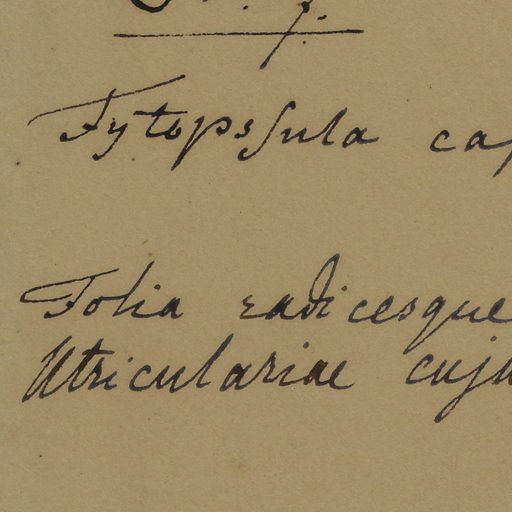 Fytopsſula ca
Folia radicesque
Utriculariae cuju